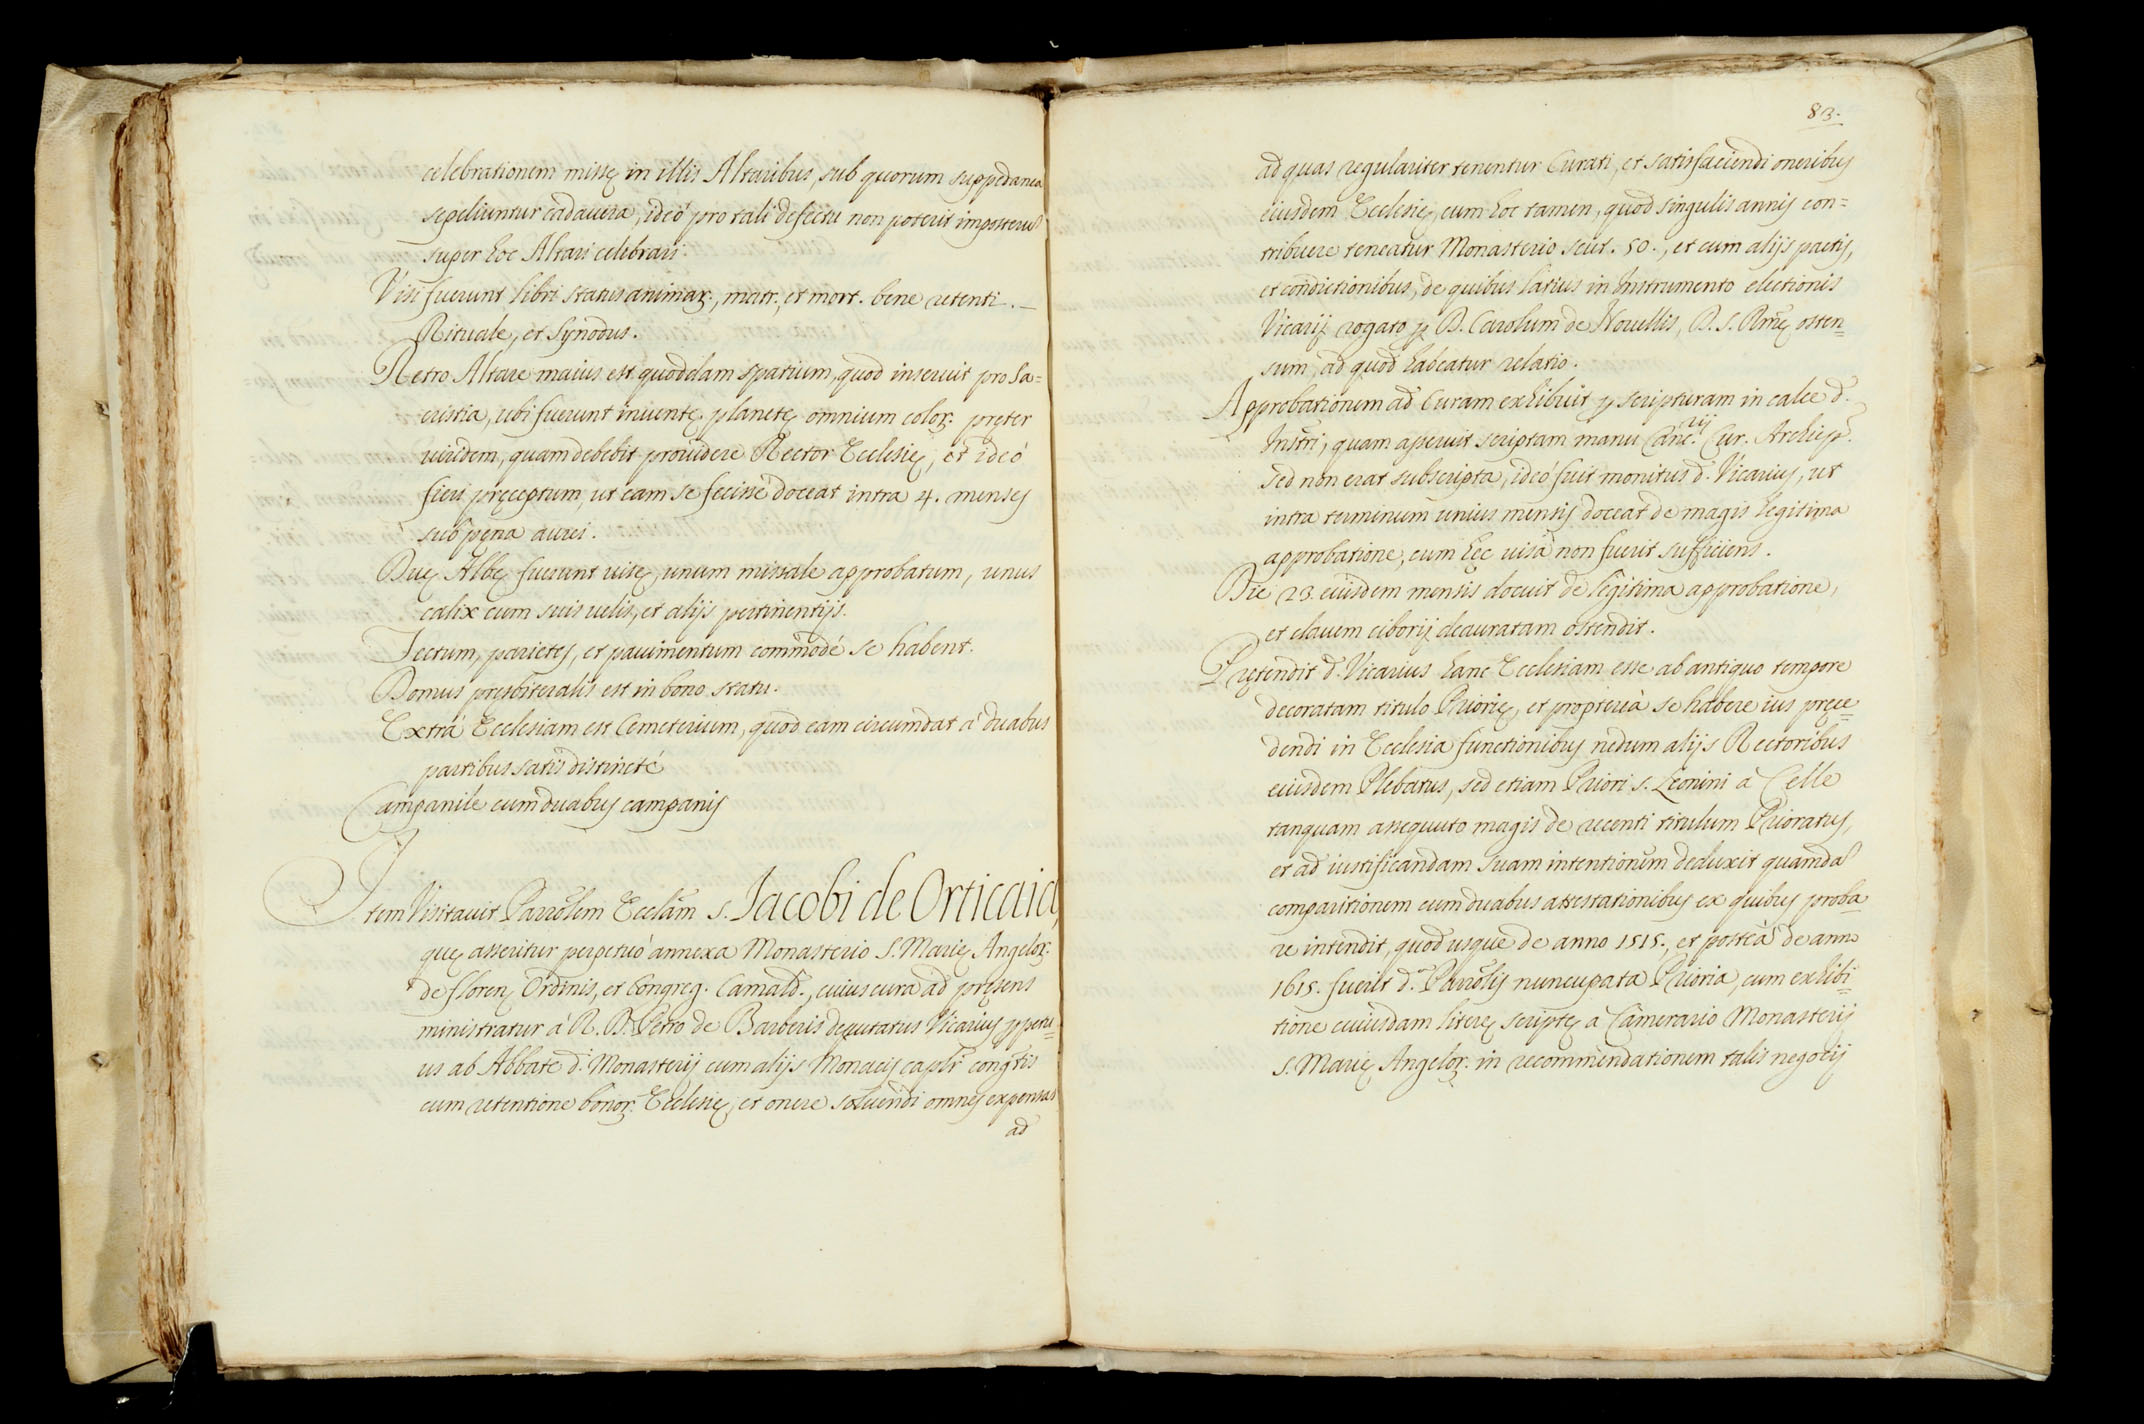 celebrationem missę in illis Altaribus, sub quorum suppedanea
sepeliuntur cadauera, ideó pro tali defectu non poterit imposteru᷃
super hoc Altari celebrari.
Visi fuerunt libri status animar., matr., et mort. bene retenti. _
Rituale, et Synodus.
Retro Altare maius est quoddam spatium, quod inseruit pro Sa=
cristia, ubi fuerunt inuentę planetę omnium color. pręter
uiridem, quam debebit prouidere Rector Ecclesię, et ideó
fieri pręceptum, ut eam se fecisse doceat intra 4. menses
sub pęna aurei.
Duę Albę fuerunt uisę, unum missale approbatum, unus
calix cum suis uelis, et alijs pertinentijs.
Tectum, parietes, et pauimentum commodé se habent.
Domus pręsbiteralis est in bono statu.
Extrá Ecclesiam est Cemeterium, quod eam circumdat á duabus
partibus satis distincté
Campanile cum duabus campanis
Item Visitauit Parrõlem Ecclãm S. Jacobi de Orticaia,
quę asseritur perpetuó annexa Monasterio S. Marię Angelor.
de floren Ordinis, et Congreg. Camald., cuius cura ad pręsens
ministratur á R. D. Petro de Barberis deputatus Vicarius ppetu=
us ab Abbate d. Monasterij cum alijs Monacis caplr congtis
cum retentione bonor. Ecclesię, et onere soluendi omnes expensas
ad
83.
ad quas regulariter tenentur Curati, et satisfaciendi oneribus
eiusdem Ecclesię, cum hoc tamen, quod singulis annis con=
tribuere teneatur Monasterio scut. 50., et cum alijs pactis,
et condictionibus, de quibus latius in Instrumento electionis
Vicarij rogato p D. Carolum de Nouellis, D. S. Rmę osten=
sum, ad quod habeatur relatio.
Approbationem ad Curam exhibuit p scripturam in calce d.
Instri, quam asseruit scriptam manu Canc.rij Cur. Archiep.
sed non erat subscripta, ideó fuit monitus d. Vicarius, ut
intra terminum unius mensis doceat de magis legitima
approbatione, cum hęc uisa non fuerit sufficiens.
Die 23. eiusdem mensis docuit de legitima approbatione,
et clauem ciborij deauratam ostendit.
Pretendit d. Vicarius hanc Ecclesiam esse ab antiquo tempore
decoratam titulo Priorię, et proptereà se habere ius pręce=
dendi in Ecclesia functionibus nedum alijs Rectoribus
eiusdem Plebatus, sed etiam Priori S. Leonini á Celle
tanquam assequuto magis de recenti titulum Prioratus,
et ad iustificandam suam intentionem deduxit quamda᷃
comparitionem cum duabus attestationibus ex quibus proba=
re intendit, quod usque de anno 1515., et posteà de anno
1615. fuerit d. Parrõlis nuncupata Prioria, cum exhibi=
tione cuiusdam literę scriptę a Camerario Monasterij
S. Marię Angelor. in recommendationem talis negotij